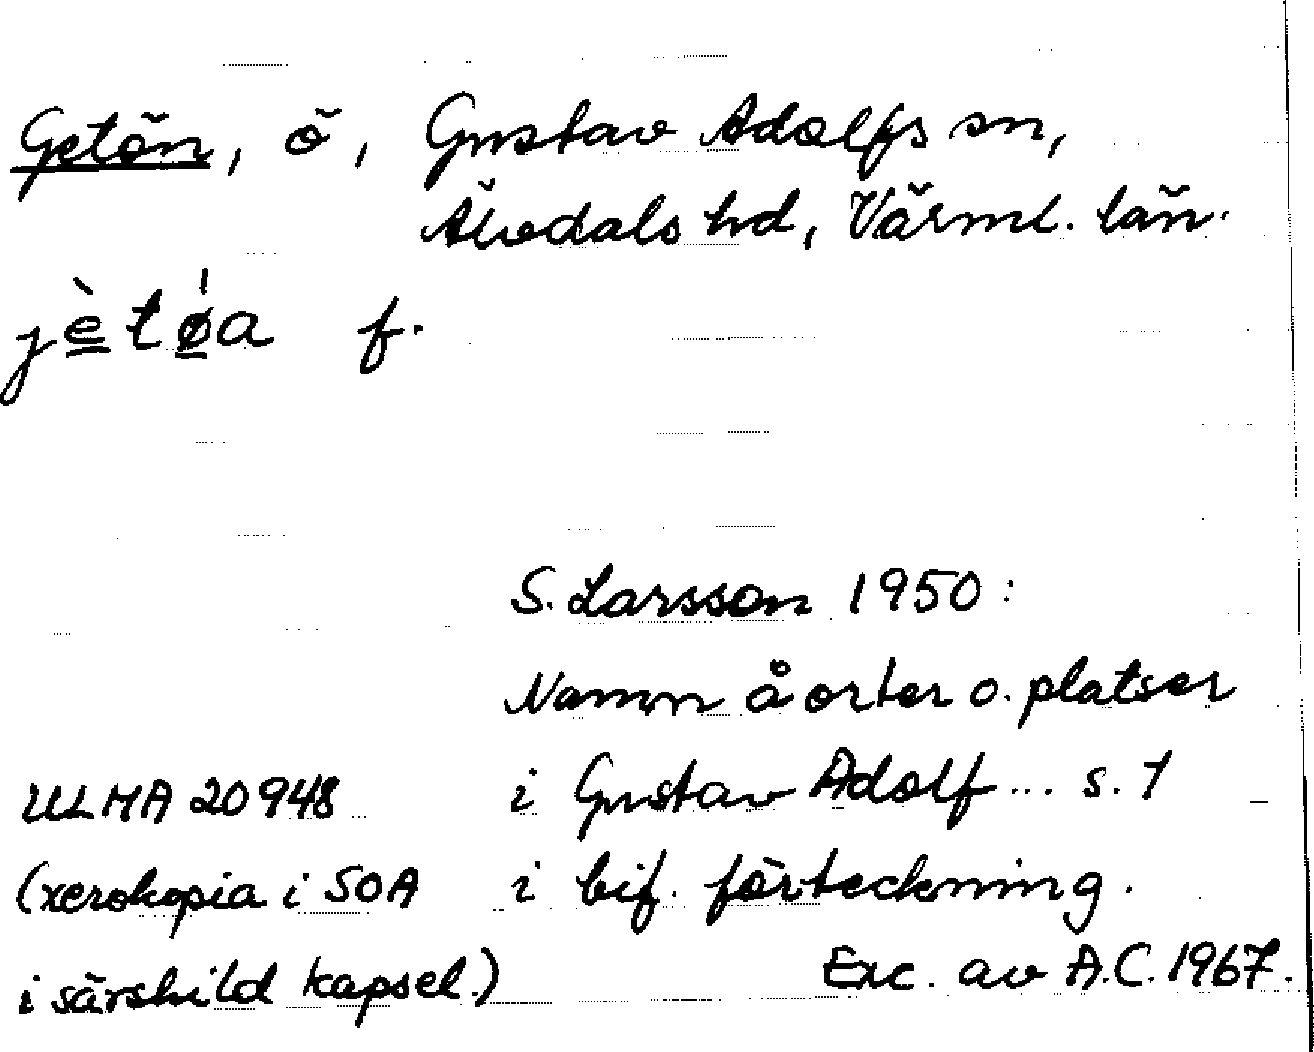 Getön, ö, Gustav Adolfs sn,
Älvdals hd, Värml. län.
jètǿa f.
S. Larsson 1950:
Namn å orter o. platser
i Gustav Adolf... s. 1
i bif. förteckning.
ULMA 20948
(xerokopia i SOA
i särskild kapsel.)
Exc. av A.C. 1967.